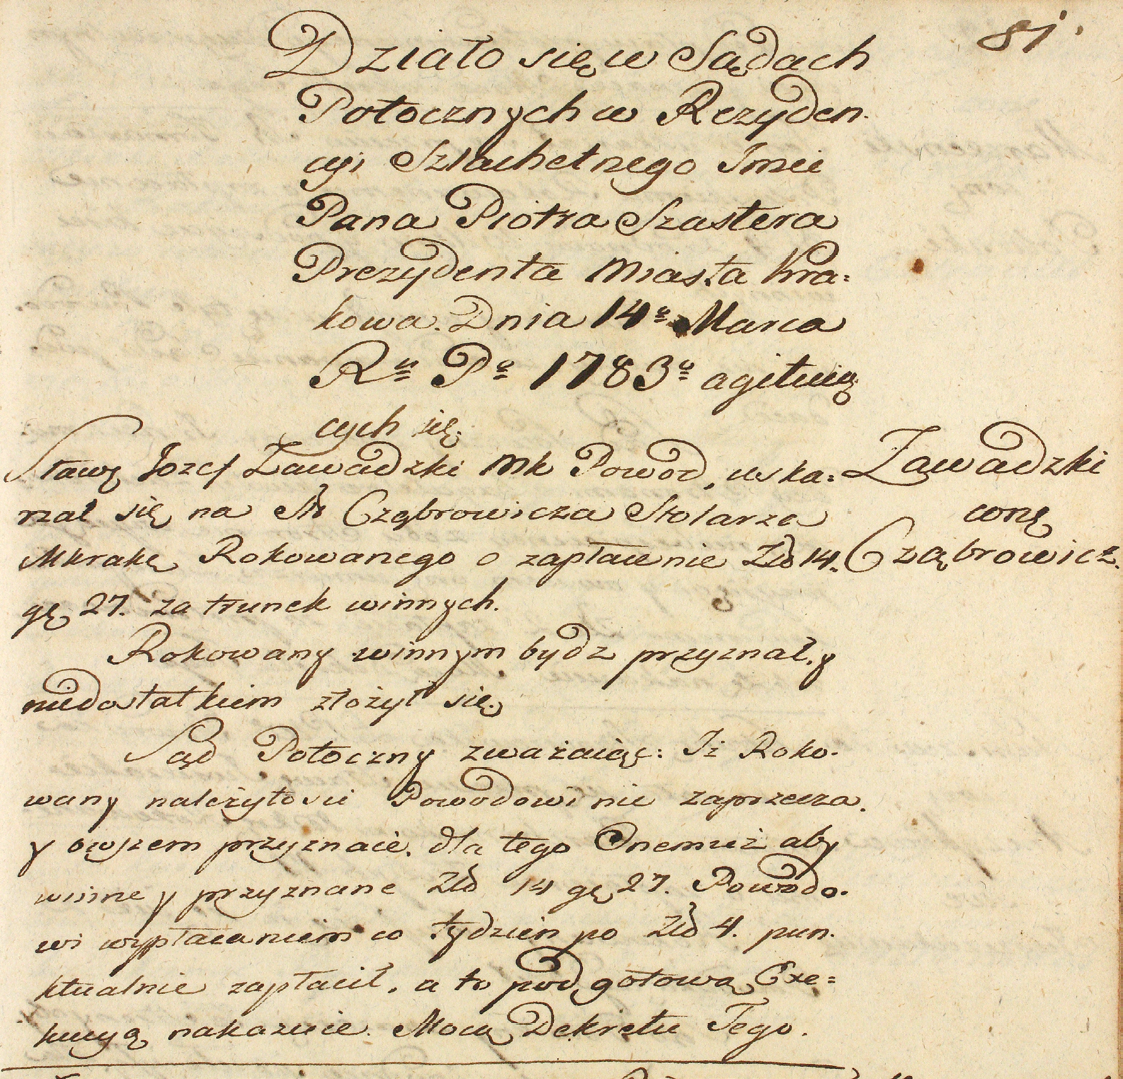 81
Działo się w Sądach
Potocznych w Rezyden-
cyi Szlachetnego Jmci
Pana Piotra Szastera
Prezydenta Miasta Kra:
kowa. Dnia 14º Marca
Rº Pº 1783º agituią
cych się.
Stawę Jozef Zawadzki Mk Powod, uska:
rzał się na Sł. Cząbrowicza Stolarza
MKrakę Rokowanego o zapłacenie Złł 14.
gę 27. za trunek winnych.
Zawadzki
conę
Cząbrowicz.
Rokowany winnym bydz przyznał, y
niedostatkiem złożył się.
Sąd Potoczny zważaiąc: Iż Roko-
wany należytości Powodowi nie zaprzecza.
y owszem przyznaie. dla tego Onemuż aby
winne y przyznane Złł 14 gę 27. Powodo-
wi wypłacaniem co tydzień po Złł 4. pun-
ktualnie zapłacił, a to pod gotową Exe=
kucyą nakazuie. Mocą Dekretu Tego.